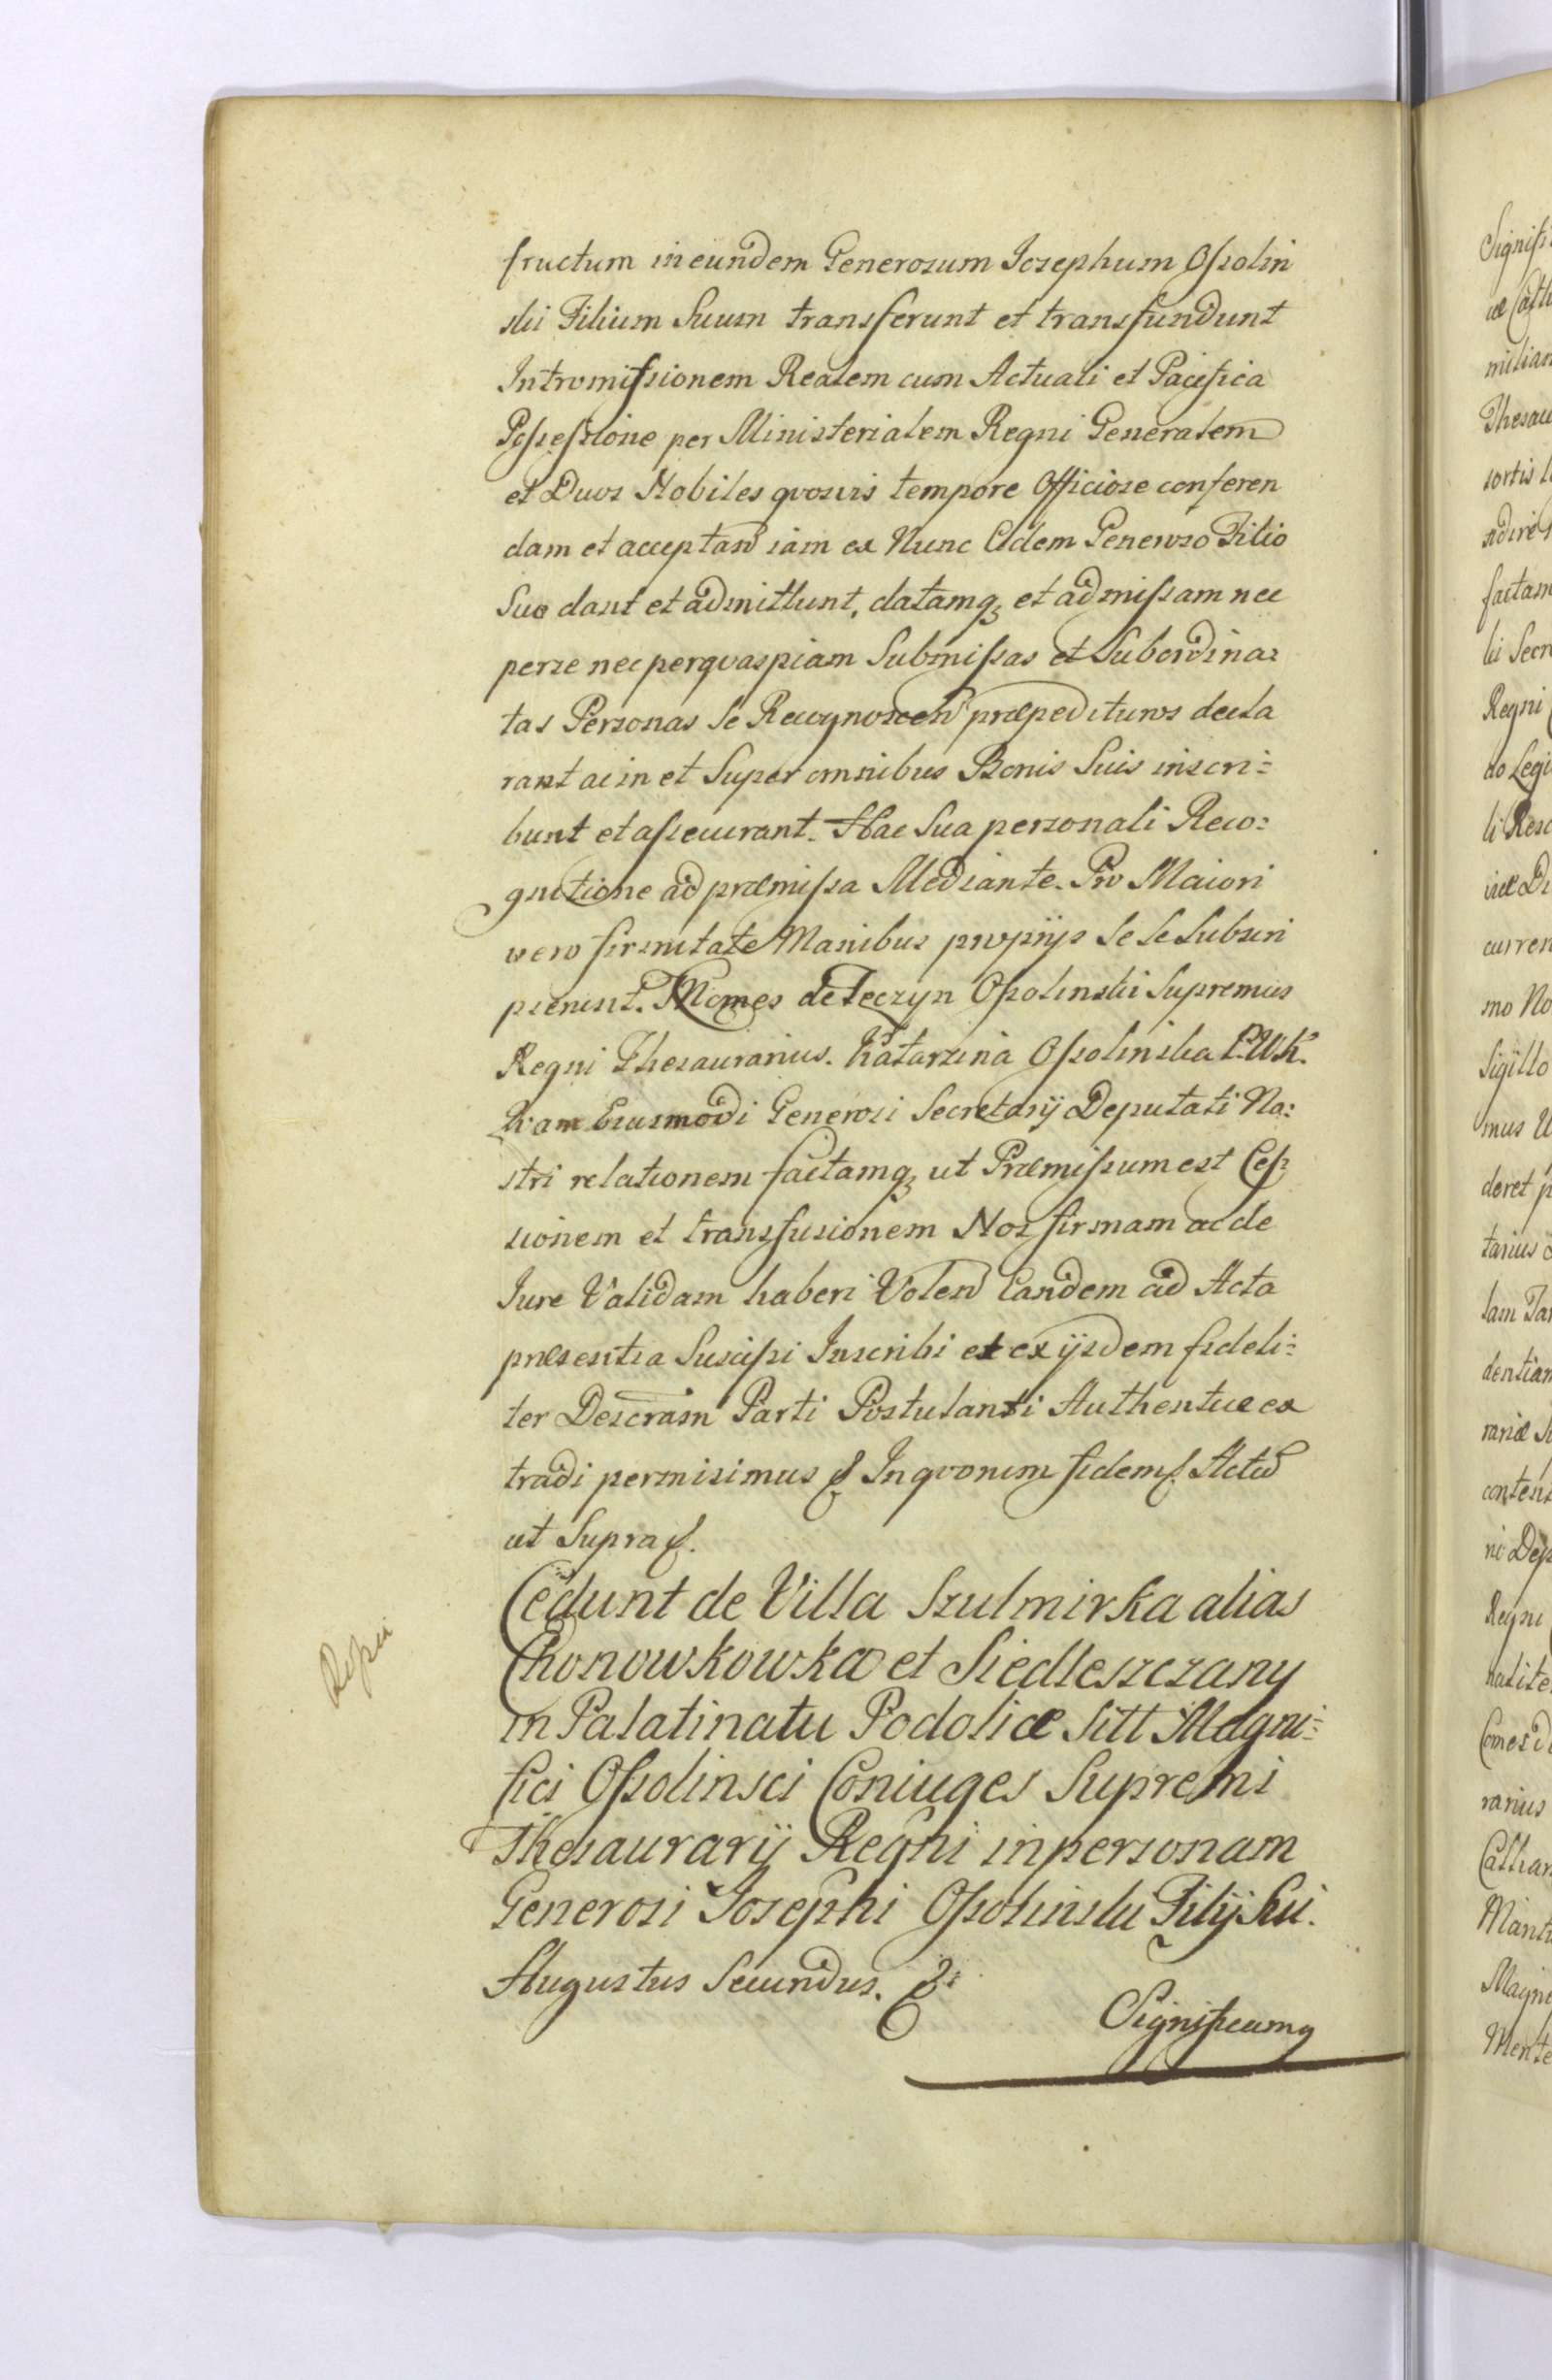 fructum in eundem Generosum Josephum Ossolin
ski Filium Suum transferunt et transfundunt
Intromissionem Realem cum Actuali et Pacifica
Possessione per Ministerialem Regni Generalem
et Duos Nobiles quosvis tempore Officiose conferen
dam et acceptand iam ex Nunc Eidem Generoso Filio
Suo dant et admittunt, datamq et admissam nec
per se nec per quaspiam Submissas et Subordina:
tas Personas Se Recognoscen præpedituros decla
rant ac in et Super omnibus Bonis Suis inscri:
bunt et assecurant. Hac Sua personali Reco:
gnitione ad præmissa Mediante. Pro Maiori
vero firmitate Manibus proprijs Se Se Subscri
pserunt. Comes de Teczyn Ossolinski Supremus
Regni Thesaurarius. Katarzina Ossolinska P.W.K.
Quam Eiusmodi Generosi Secretarij Deputati No:
stri relationem factamq ut Præmissum est Ces
sionem et transfusionem Nos firmam ac de
Jure Validam haberi Volen Eandem ad Acta
præsentia Suscipi Inscribi et ex ijsdem fideli:
ter Descram Parti Postulanti Authentice ex
tradi permisimus In quorum fidem Actu
ut Supra
Cedunt de Villa Szulmirka alias
Chonowkowka et Siedleszczany
in Palatinatu Podoliæ Sitt Magni:
fici Ossolinsci Coniuges Supremi
Thesaurarij Regni in personam
Generosi Josephi Ossolinski Filij Sui.
Augustus Secundus.
Significamq